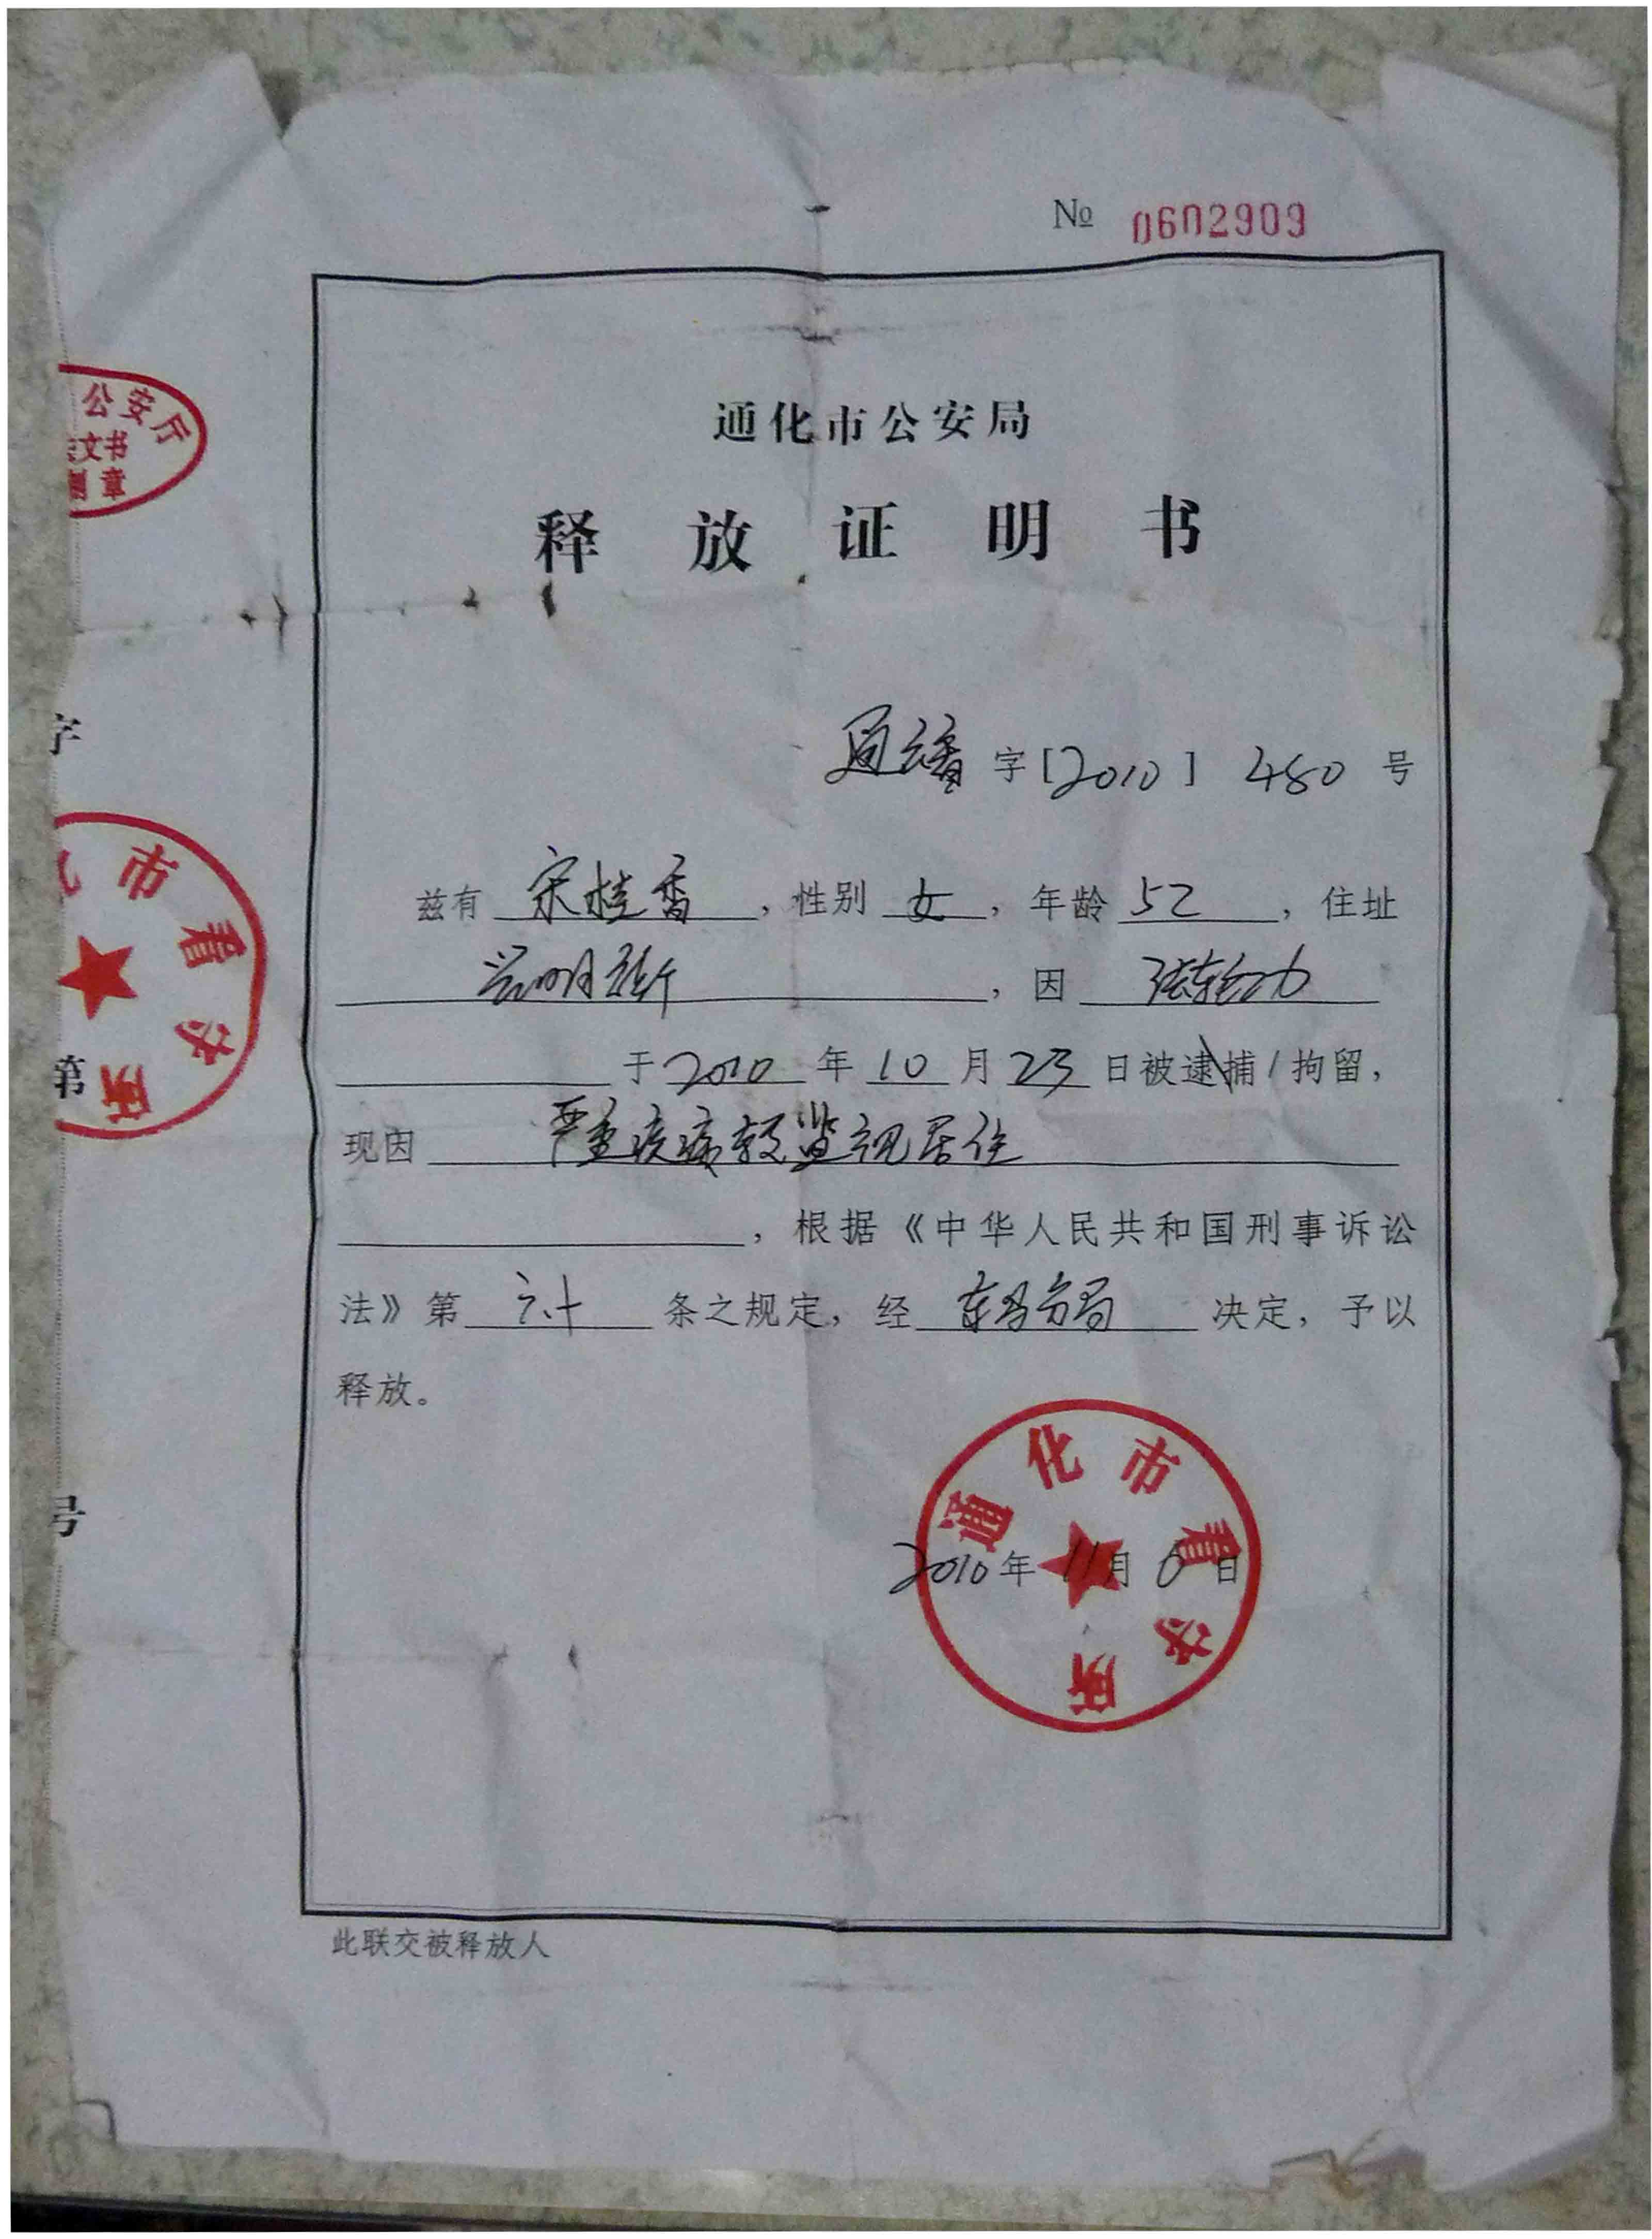 № 0602909
公安厅
文书
制章
通化市公安局
释放证明书
字
通 字[2010] 480 号
兹有 宋桂香 ，性别 女 ，年龄 52 ，住址
兴明街 ，因 法轮功
于 2010 年 10 月 23 日被逮捕/拘留，
现因 严重疾病 监视居住
，根据《中华人民共和国刑事诉讼
法》第 六十 条之规定，经 东昌分局 决定，予以
释放。
市看守所
第
号
通化市看守所
2010年 11月 6日
此联交被释放人